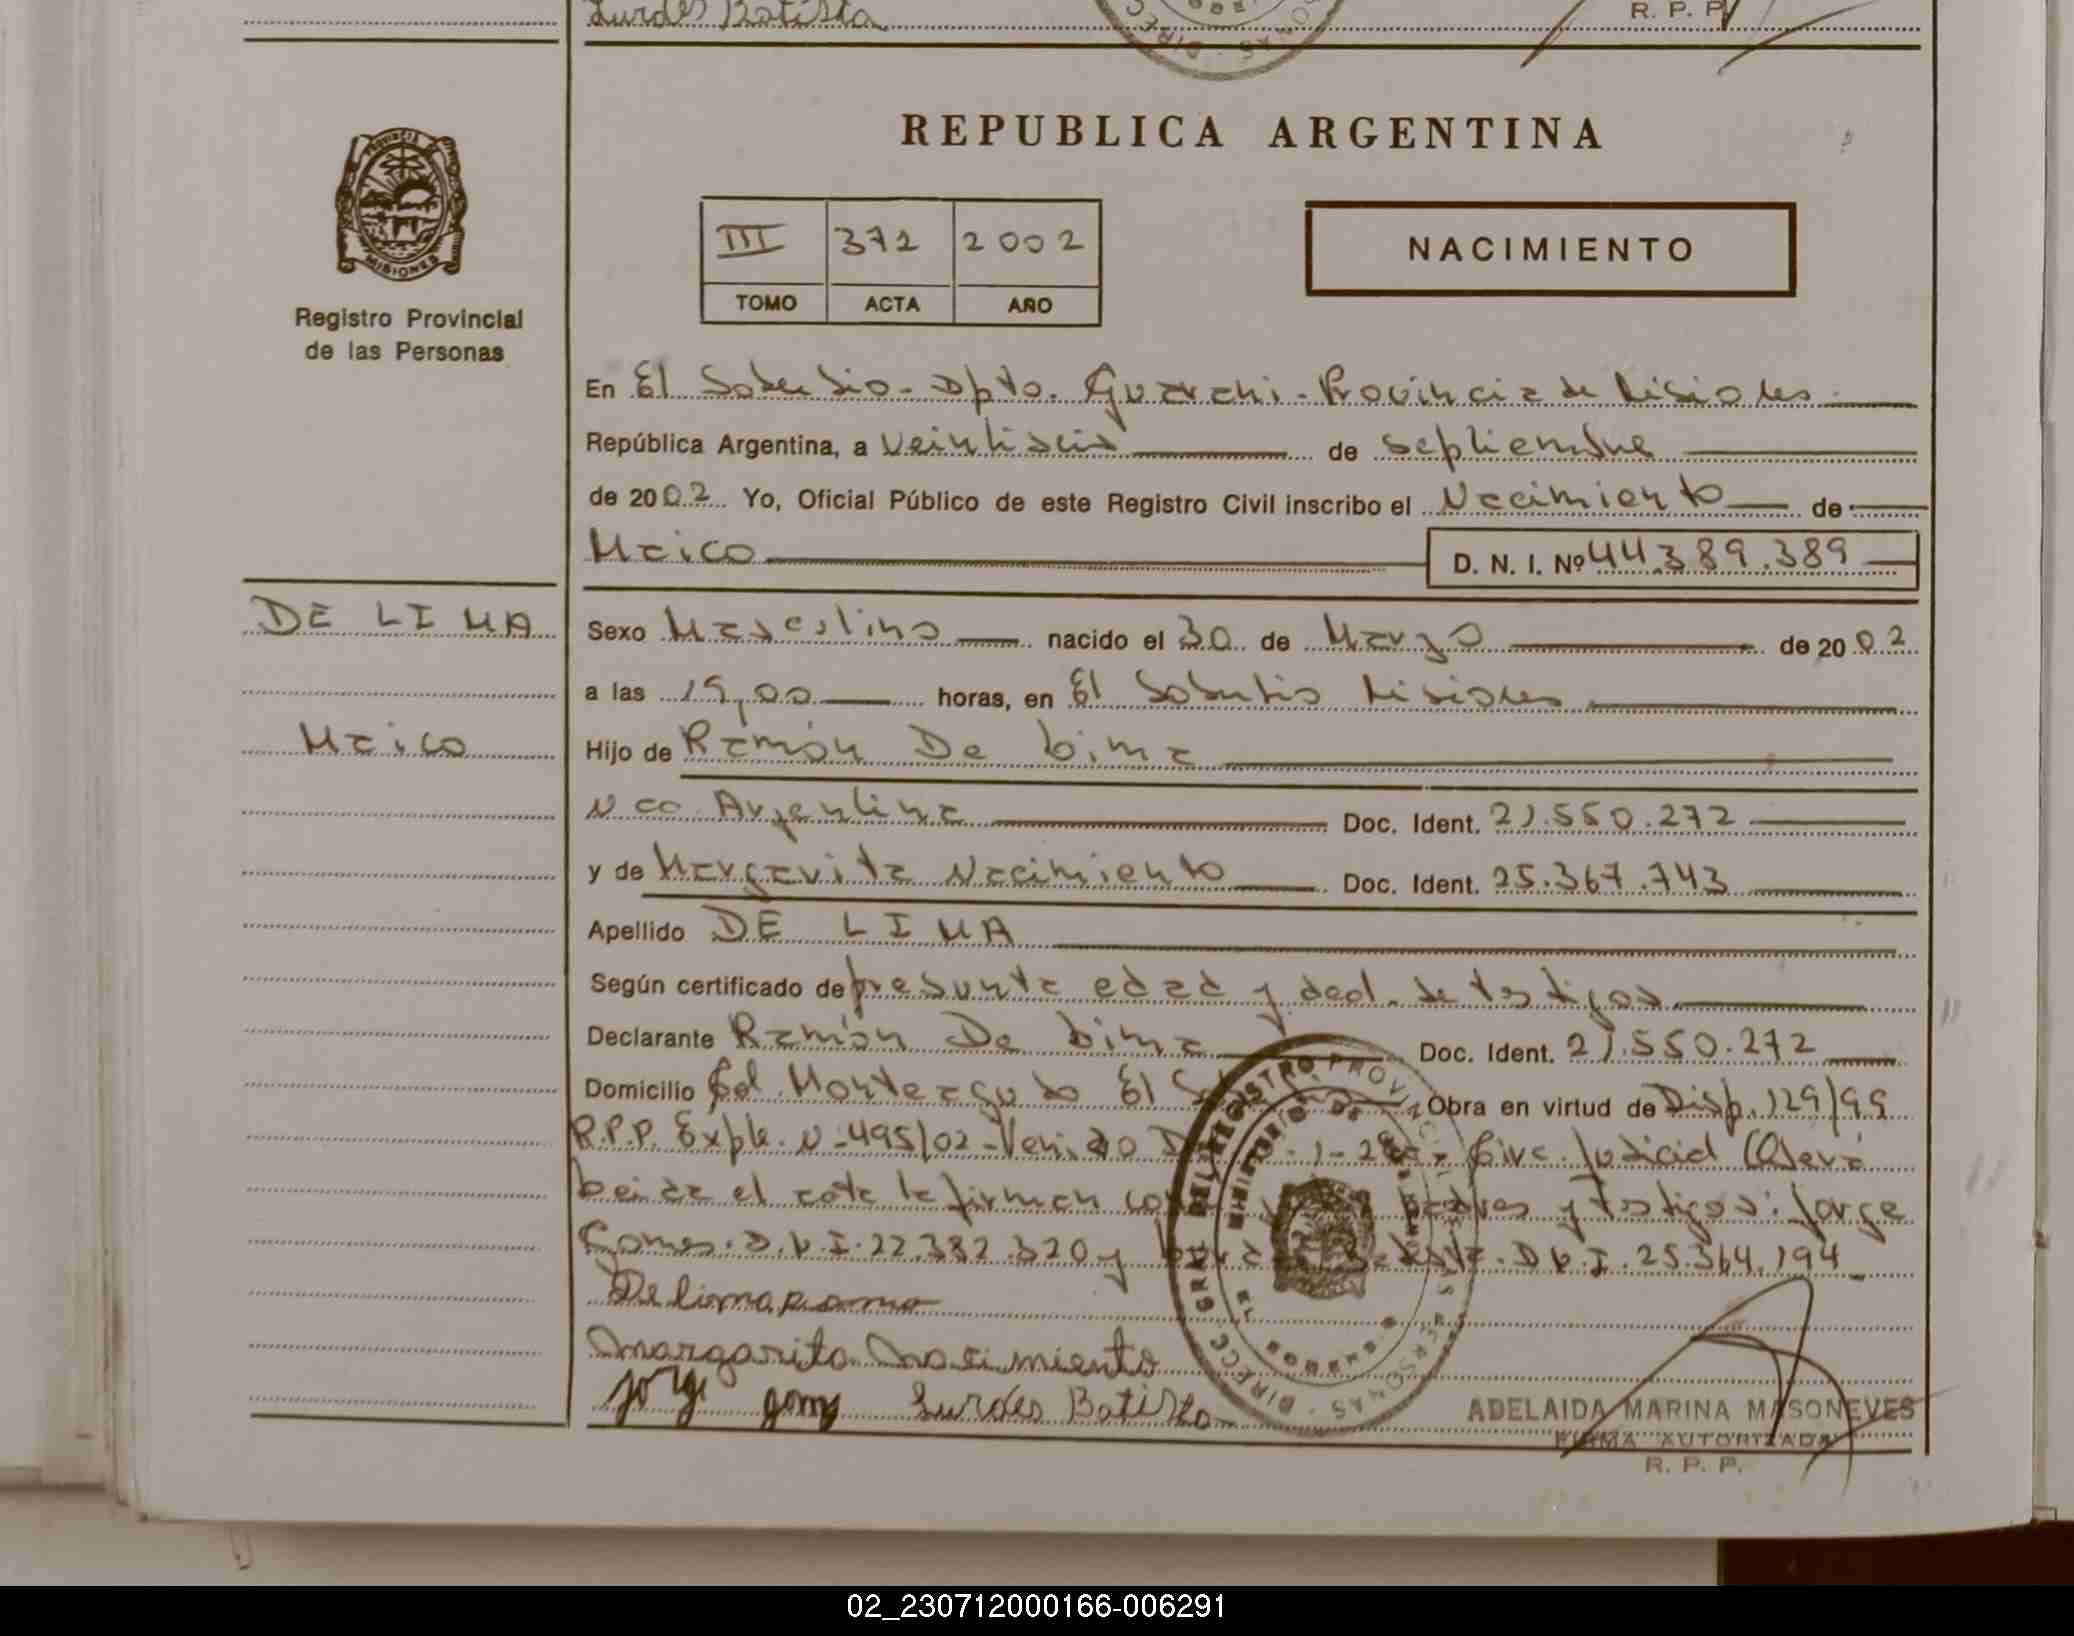 Lurdes Batista
R. P. P.
REPUBLICA ARGENTINA
PROVINCIA DE
MISIONES
Registro Provincial
de las Personas
III 372 2002
TOMO ACTA AÑO
NACIMIENTO
En El Soberbio - Dpto. Guarani - Provincia de Misiones
República Argentina, a veintiseis de septiembre
de 2002 Yo, Oficial Público de este Registro Civil inscribo el Nacimiento de
Maico D. N. I. Nº 44.389.389
DE LIMA
Maico
Sexo Masculino nacido el 30 de Marzo de 2002
a las 15,00 horas, en El Soberbio Misiones
Hijo de Ramón De Lima
Nac. Argentina Doc. Ident. 21.550.272
y de Margarita Nacimiento Doc. Ident. 25.367.743
Apellido DE LIMA
Según certificado de presunta edad y decl. de testigos
Declarante Ramón De Lima Doc. Ident. 21.550.272
Domicilio Col. Monteagudo El Obra en virtud de Disp. 129/99
R.P.P. Expte. N-495/02 - Circ. Judicial Oberá
Leida el acta la firman padres y testigos: Jorge
Gomes. D.N.I. 22.382.320 y D.N.I. 25.364.194
De lima ramo
margarita nasimiento
jorge goms Lurdes Batista
ADELAIDA MARINA MASONEVES
FIRMA AUTORIZADA
R. P. P.
02_230712000166-006291